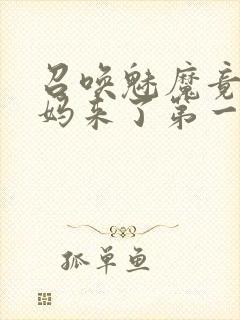 召唤魅魔竟
妈来了第一
孤单鱼